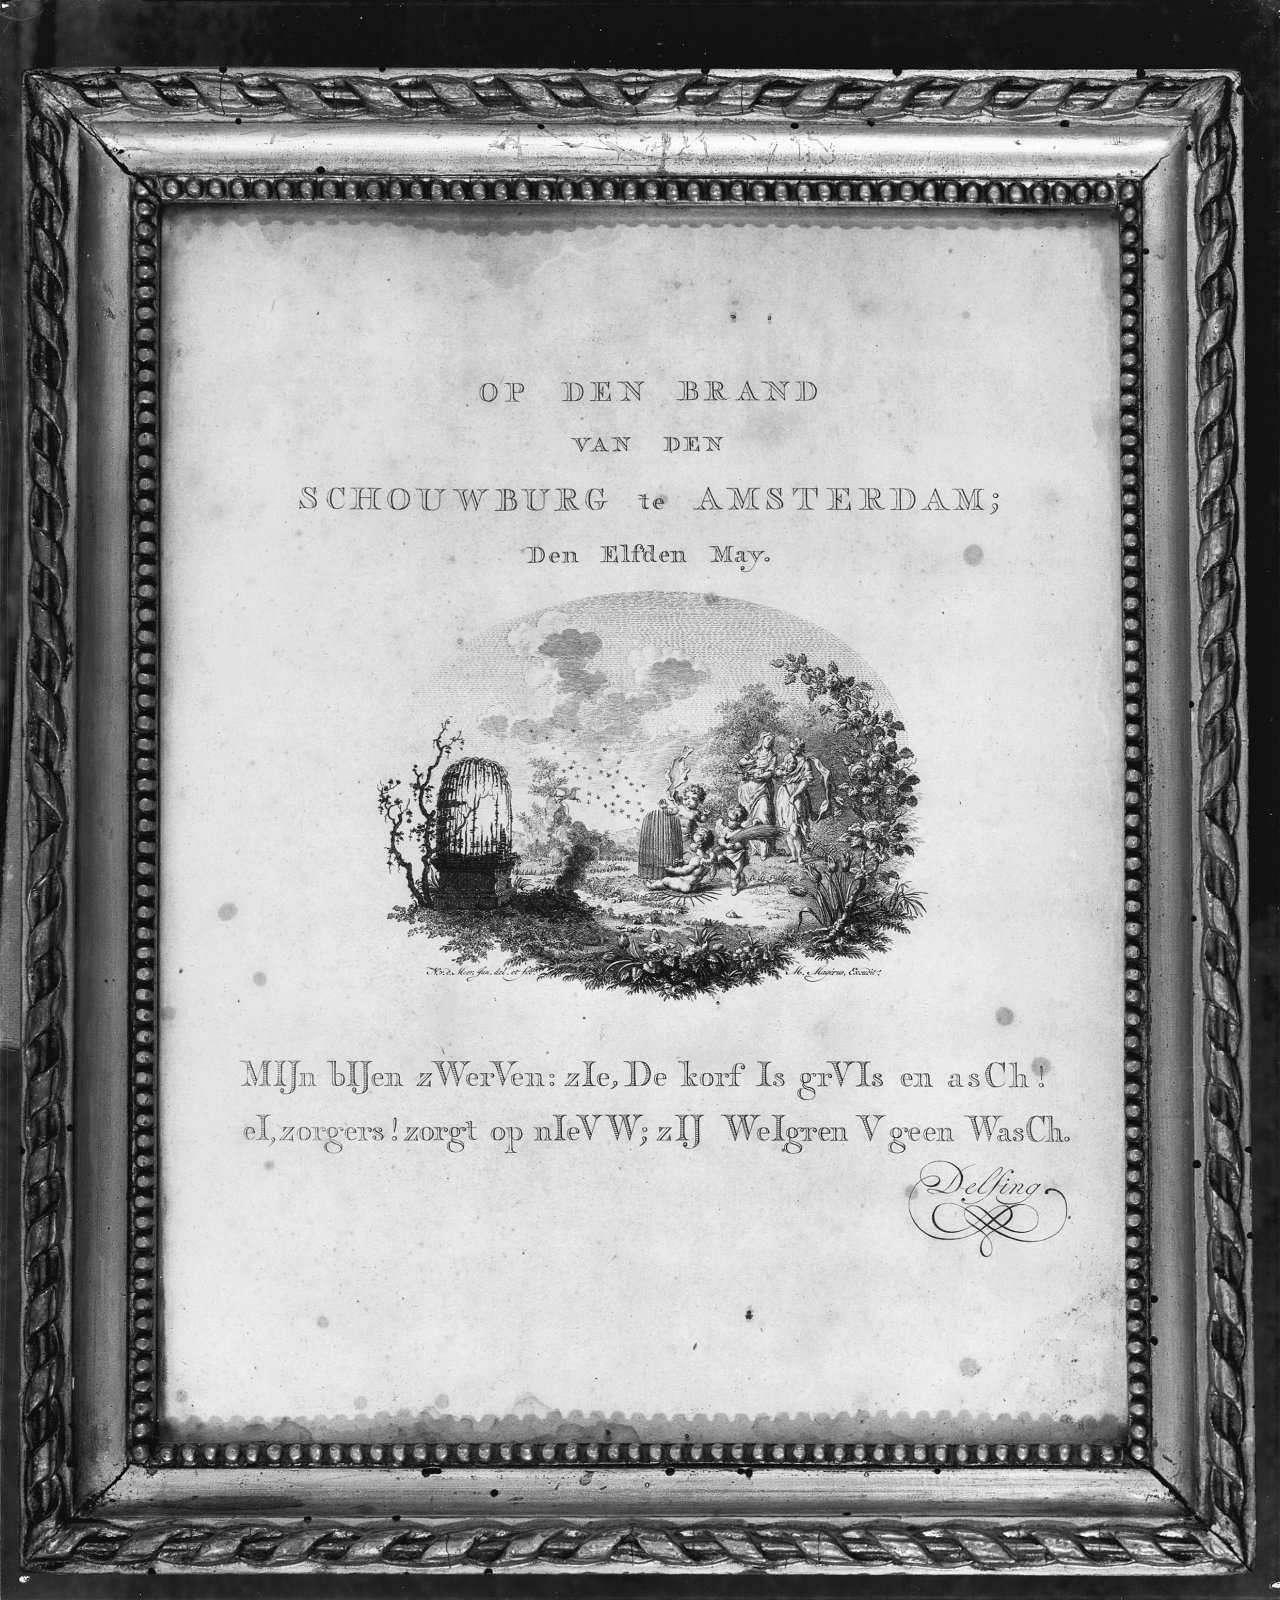 OP DEN BRAND
VAN DEN
SCHOUWBURG te AMSTERDAM;
Den Elfden May.
N. v. d. Meer, Jun. del. et fec.
M. Magérus, Excudit.
MIJn bIJen zWerVen: zIe, De korf Is grVIs en asCh!
eI, zorgers! zorgt op nIeVW; zIJ WeIgren V geen WasCh.
Delfing